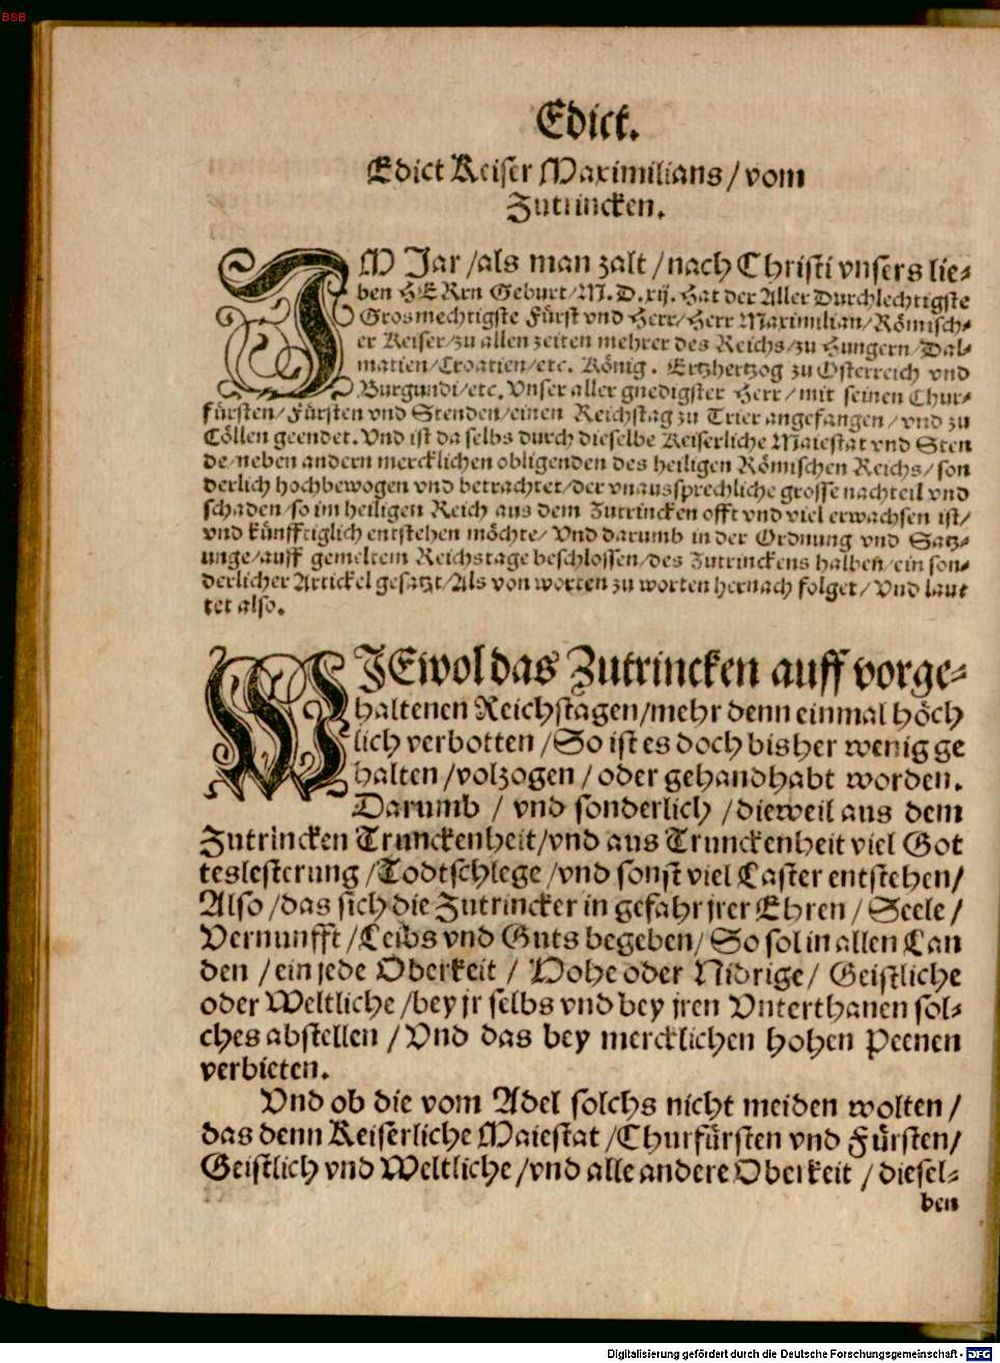 BSB
Edict.
Edict Keiser Maximilians / vom
Zutrincken.
IM Jar / als man zalt / nach Christi vnsers lie-
ben HERrn Geburt / M. D. xij. Hat der Aller Durchlechtigste
Grosmechtigste Fürst vnd Herr / Herr Maximilian / Römisch-
er Keiser / zu allen zeiten mehrer des Reichs / zu Hungern / Dal-
matien / Croatien / etc. König. Ertzhertzog zu Osterreich vnd
Burgundi / etc. Vnser aller gnedigster Herr / mit seinen Chur-
fürsten / Fürsten vnd Stenden / einen Reichstag zu Trier angefangen / vnd zu
Cöllen geendet. Vnd ist da selbs durch dieselbe Keiserliche Maiestat vnd Sten
de / neben andern mercklichen obligenden des heiligen Römischen Reichs / son
derlich hochbewogen vnd betrachtet / der vnaussprechliche grosse nachteil vnd
schaden / so im heiligen Reich aus dem Zutrincken offt vnd viel erwachsen ist /
vnd künfftiglich entstehen möchte / Vnd darumb in der Ordnung vnd Satz-
unge / auff gemeltem Reichstage beschlossen / des Zutrinckens halben / ein son-
derlicher Artickel gesatzt / Als von worten zu worten hernach folget / Vnd laut
tet also.
WIEwol das Zutrincken auff vorge-
haltenen Reichstagen / mehr denn einmal höch
lich verbotten / So ist es doch bisher wenig ge
halten / volzogen / oder gehandhabt worden.
Darumb / vnd sonderlich / dieweil aus dem
Zutrincken Trunckenheit / vnd aus Trunckenheit viel Got
teslesterung / Todtschlege / vnd sonst viel Laster entstehen /
Also / das sich die Zutrincker in gefahr jrer Ehren / Seele /
Vernunfft / Leibs vnd Guts begeben / So sol in allen Lan
den / ein jede Oberkeit / Hohe oder Nidrige / Geistliche
oder Weltliche / bey jr selbs vnd bey jren Vnterthanen sol-
ches abstellen / Vnd das bey mercklichen hohen Peenen
verbieten.
Vnd ob die vom Adel solchs nicht meiden wolten /
das denn Keiserliche Maiestat / Churfürsten vnd Fürsten /
Geistlich vnd Weltliche / vnd alle andere Oberkeit / diesel-
ben
Digitalisierung gefördert durch die Deutsche Forschungsgemeinschaft - DFG